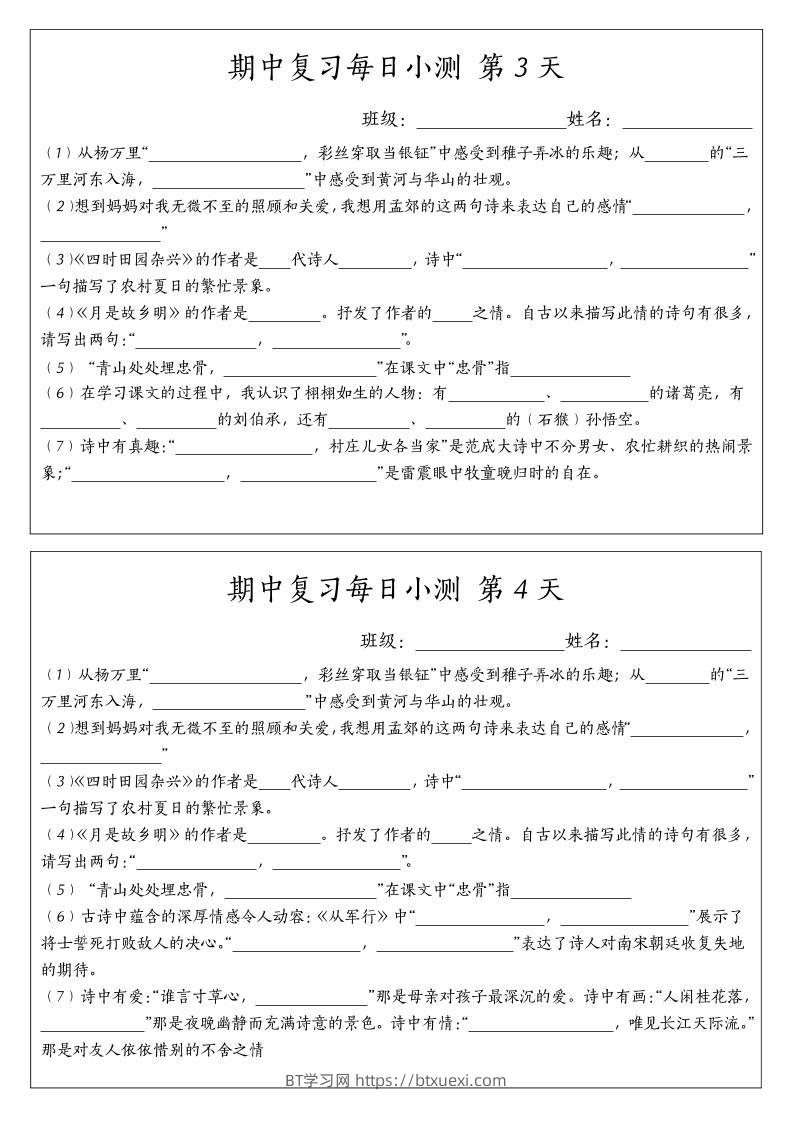 期中复习每日小测 第 3 天
班级：______________姓名：____________
（1）从杨万里“__________________，彩丝穿取当银钲”中感受到稚子弄冰的乐趣；从________的“三
万里河东入海，__________________”中感受到黄河与华山的壮观。
（2）想到妈妈对我无微不至的照顾和关爱，我想用孟郊的这两句诗来表达自己的感情“______________，
_______________”
（3）《四时田园杂兴》的作者是____代诗人_________，诗中“__________________，________________”
一句描写了农村夏日的繁忙景象。
（4）《月是故乡明》的作者是_________。抒发了作者的_____之情。自古以来描写此情的诗句有很多，
请写出两句：“_______________，________________”。
（5）“青山处处埋忠骨，___________________”在课文中“忠骨”指_______________
（6）在学习课文的过程中，我认识了栩栩如生的人物：有____________、___________的诸葛亮，有
__________、__________的刘伯承，还有__________、__________的（石猴）孙悟空。
（7）诗中有真趣：“_________________，村庄儿女各当家”是范成大诗中不分男女、农忙耕织的热闹景
象；“___________________，_________________”是雷震眼中牧童晚归时的自在。
期中复习每日小测 第 4 天
班级：______________姓名：____________
（1）从杨万里“__________________，彩丝穿取当银钲”中感受到稚子弄冰的乐趣；从________的“三
万里河东入海，__________________”中感受到黄河与华山的壮观。
（2）想到妈妈对我无微不至的照顾和关爱，我想用孟郊的这两句诗来表达自己的感情“______________，
_______________”
（3）《四时田园杂兴》的作者是____代诗人_________，诗中“__________________，________________”
一句描写了农村夏日的繁忙景象。
（4）《月是故乡明》的作者是_________。抒发了作者的_____之情。自古以来描写此情的诗句有很多，
请写出两句：“_______________，________________”。
（5）“青山处处埋忠骨，___________________”在课文中“忠骨”指_______________
（6）古诗中蕴含的深厚情感令人动容：《从军行》中“________________，________________”展示了
将士誓死打败敌人的决心。“________________，_________________”表达了诗人对南宋朝廷收复失地
的期待。
（7）诗中有爱：“谁言寸草心，______________”那是母亲对孩子最深沉的爱。诗中有画：“人闲桂花落，
_____________”那是夜晚幽静而充满诗意的景色。诗中有情：“__________________，唯见长江天际流。”
那是对友人依依惜别的不舍之情
BT学习网 https://btxuexi.com